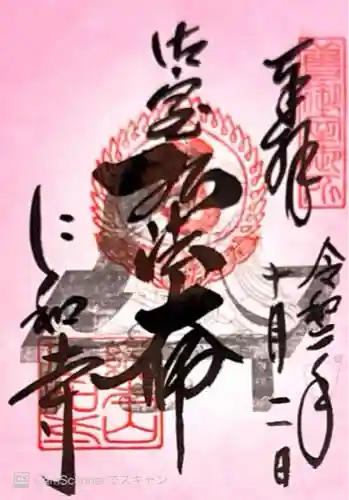 奉拝
令和二年
十月二日
御室
弘法大師
仁和寺
CS CamScanner でスキャン